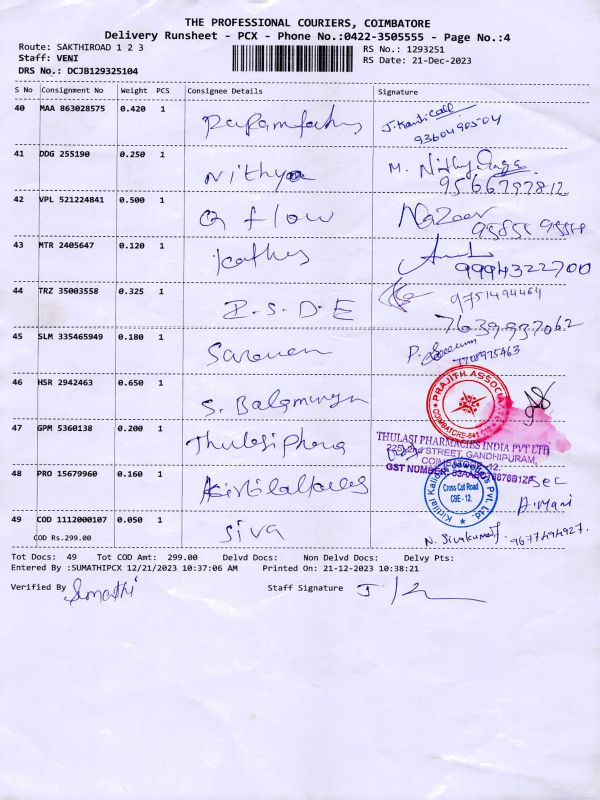 THE PROFESSIONAL COURIERS, COIMBATORE
Delivery Runsheet - PCX - Phone No.:0422-3505555 - Page No.:4
Route: SAKTHIROAD 1 2 3
RS No.: 1293251
Staff: VENI
RS Date: 21-Dec-2023
DRS No.: DCJB129325104
S No Consignment No Weight PCS Consignee Details Signature
40 MAA 863028575 0.420 1
9360490504
41 DDG 255190 0.250 1 Nithya M.
9566797812
42 VPL 521224841 0.500 1 Q flow Nazeer
43 MTR 2405647 0.120 1 Kathis
9994322700
44 TRZ 35003558 0.325 1 Z.S.D.E 9751494464
7639937062
45 SLM 335465949 0.180 1 Saravan P.
7708975463
46 HSR 2942463 0.650 1 S. Balamurugan
PRAJITH ASSOCIAT
47 GPM 5360138 0.200 1 Thulasi Pharma
THULASI PHARMACIES INDIA PVT LTD
2nd STREET, GANDHIPURAM,
GST NUMBER
48 PRO 15679960 0.160 1
Kirtilal Kalidas Jewellers Pvt. Ltd
Cross Cut Road
CBE - 12.
Sec
A. Mani
49 COD 1112000107 0.050 1 Siva
COD Rs.299.00
N. Sivakumar 9677494927.
Tot Docs: 49 Tot COD Amt: 299.00 Delvd Docs: Non Delvd Docs: Delvy Pts:
Entered By :SUMATHIPCX 12/21/2023 10:37:06 AM Printed On: 21-12-2023 10:38:21
Verified By Sumathi Staff Signature